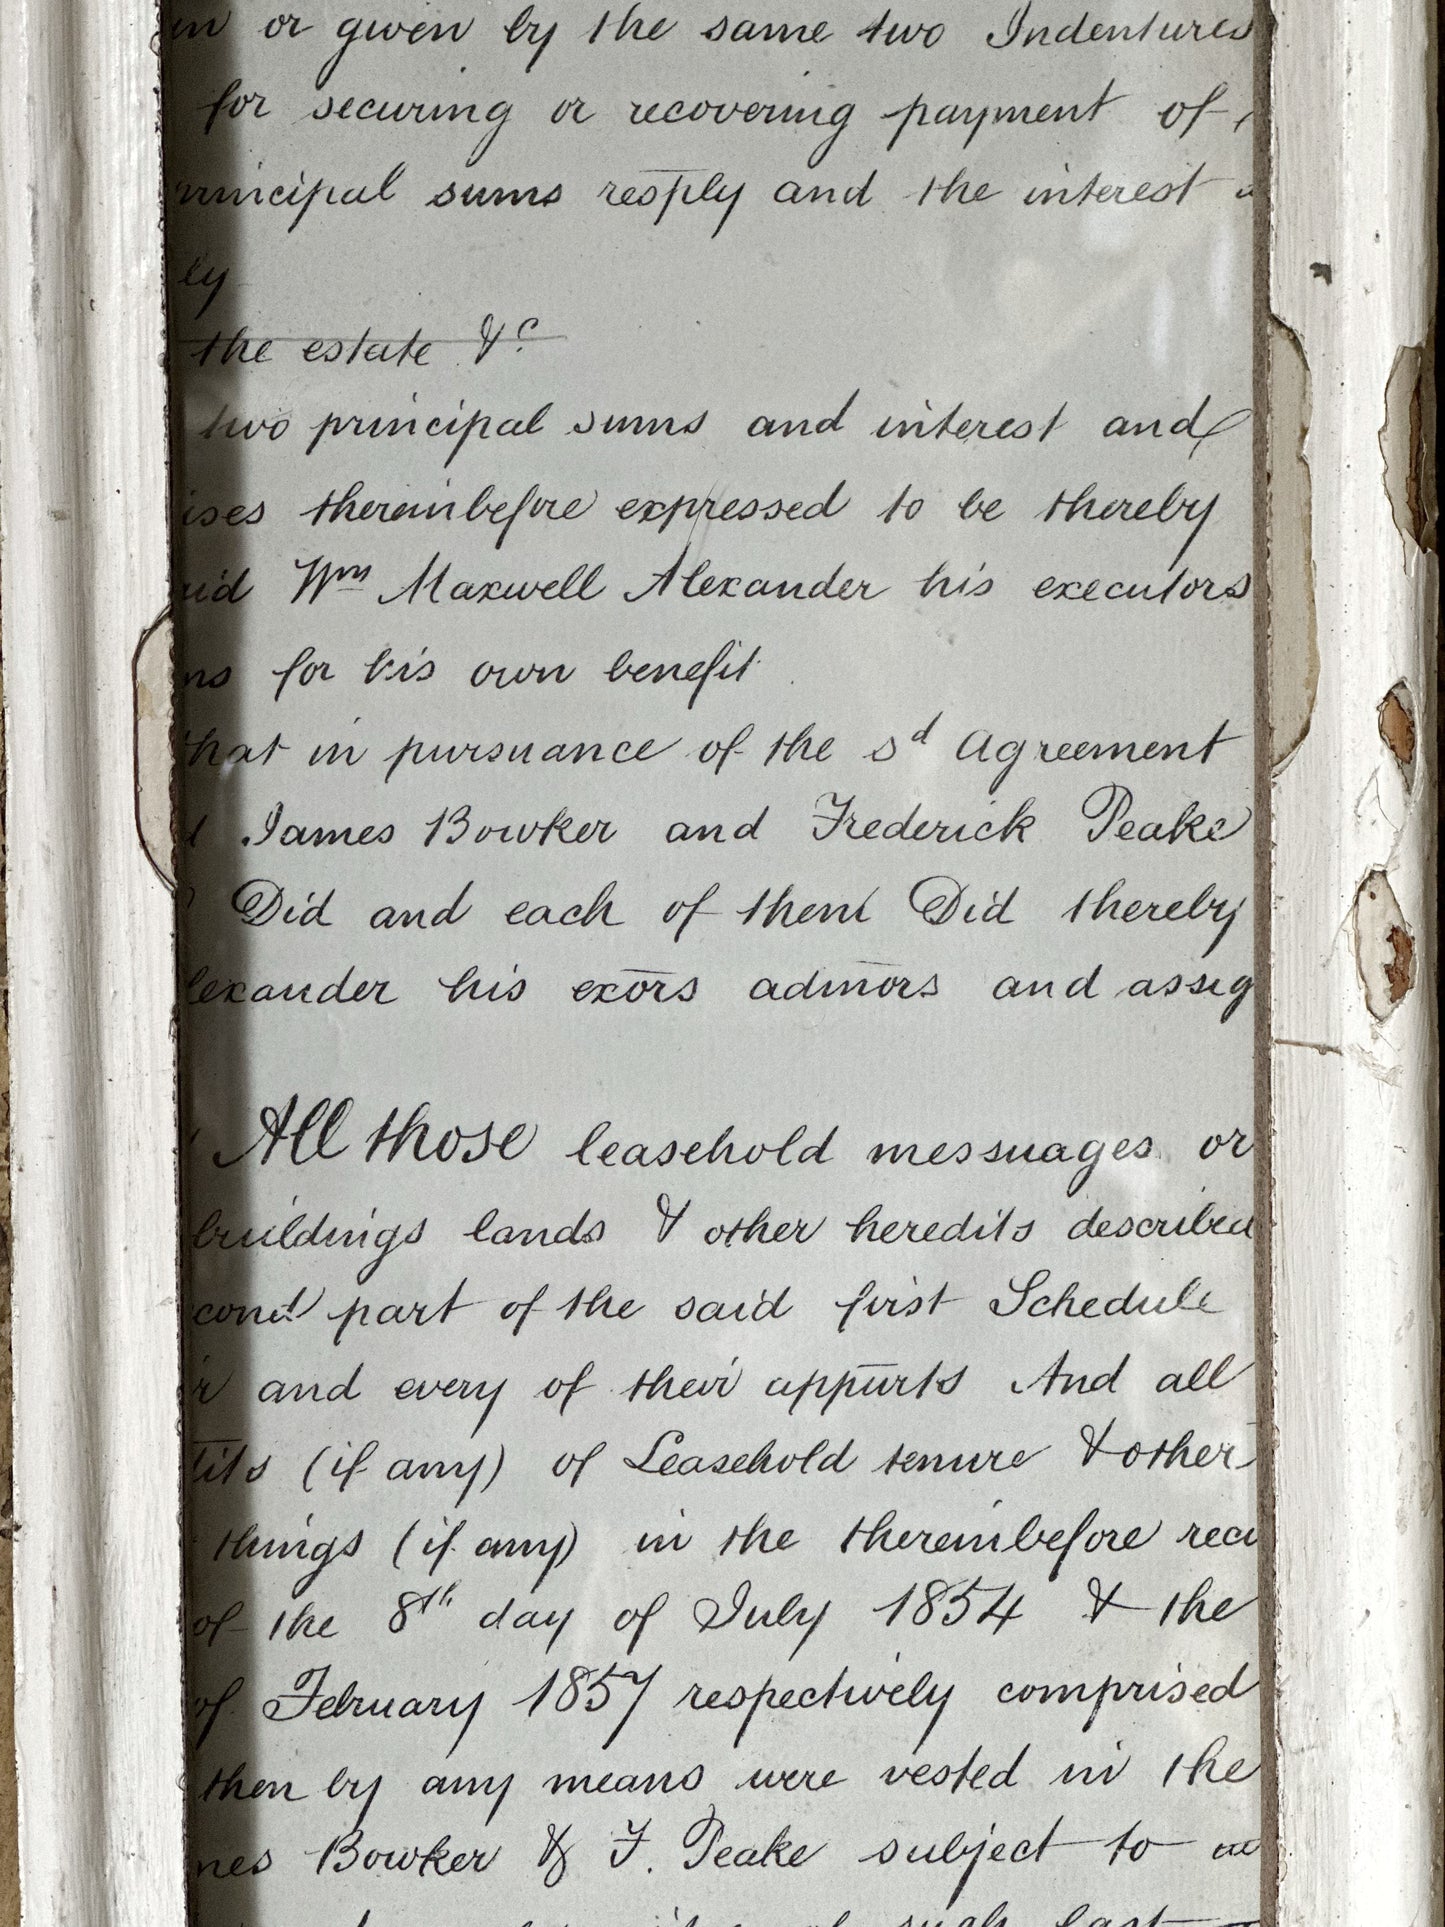 or given by the same two Indentures
for securing or recovering payment of
principal sums resply and the interest
ly
the estate &c
two principal sums and interest and
ises thereinbefore expressed to be thereby
aid Wm Maxwell Alexander his executors
ns for his own benefit
that in pursuance of the sd Agreement
James Bowker and Frederick Peake
Did and each of them Did thereby
lexander his exors admors and assig
All those leasehold messuages or
buildings lands & other heredits described
cond part of the said first Schedule
and every of their appurts And all
(if any) of Leasehold tenure & other
things (if any) in the thereinbefore reci
of the 8th day of July 1854 & the
of February 1857 respectively comprised
then by any means were vested in the
mes Bowker & F. Peake subject to
of such last